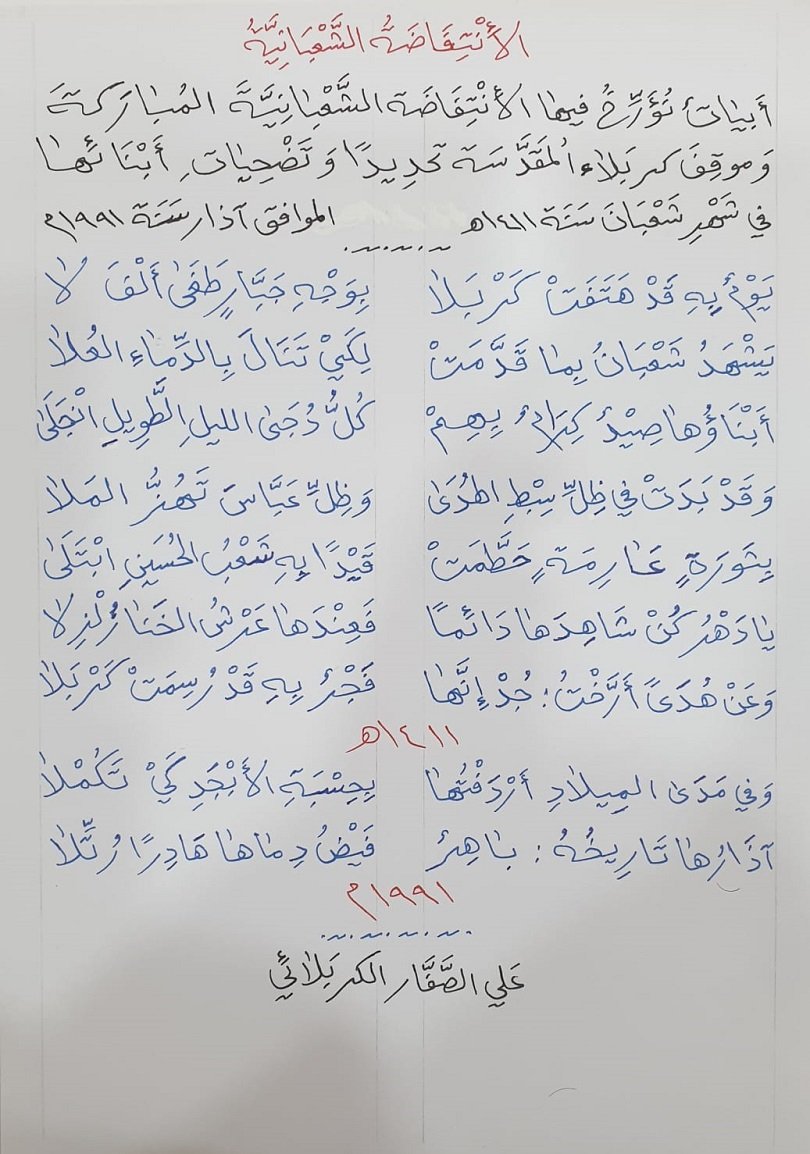 الأنْتِفَاضَةُ الشَّعْبَانِيَّةُ
أَبيَاتٌ تُؤَرِّخُ فيها الأنْتِفَاضَة الشَّعْبانِيَّةَ المُبارَكةَ
وَموقِفَ كربَلاء المُقَدَّسَة تحديدًا وَتَضْحِياتِ أَبْنَائها
في شَهْرِ شَعْبَانَ سَنَة ١٤١١هـ الموافق آذار سَنَة ١٩٩١م
يَوْمٌ بِهِ قَدْ هَتَفَتْ كَرْبَلا بِوَجْهِ جَبَّارٍ طَغَىٰ أَلْفَ لا
يَشْهَدُ شَعْبَانُ بِما قَدَّمَتْ لِكَيْ تَنَالَ بِالدِّماءِ العُلا
أَبْنَاؤُها صِيْدٌ كِرَامٌ بِهِمْ كُلُّ دُجَىٰ الليلِ الطَّوِيلِ انْجَلَىٰ
وَقَدْ بَدَتْ في ظِلِّ سِبْطِ الهُدَىٰ وَظِلِّ عَبَّاسَ تَهُزُّ المَلا
بِثَورَةٍ عَارِمَةٍ حَطَّمَتْ قَيْدًا بِهِ شَعْبُ الحُسَينِ ابْتَلَىٰ
يا دَهْرُ كُنْ شَاهِدَها دَائمًا فَعِنْدَها عَرْشُ الخَنَا زُلْزِلا
وَعَنْ هُدَىً أَرَّخْتُ: جُدْ إنَّها فَجْرٌ بِهِ قَدْ رُسِمَتْ كَرْبَلا
١٤١١هـ
وَفي مَدَىٰ المِيلادِ أَرْدَفْتُها بِحِسْبَةِ الأَبْجَدِ كَيْ تَكْمُلا
آذَارُها تَارِيخُهُ: باهِرٌ فَيْضُ دِماها هَادِرًا رُتِّلا
١٩٩١م
عَلي الصَّفَّار الكربَلائي